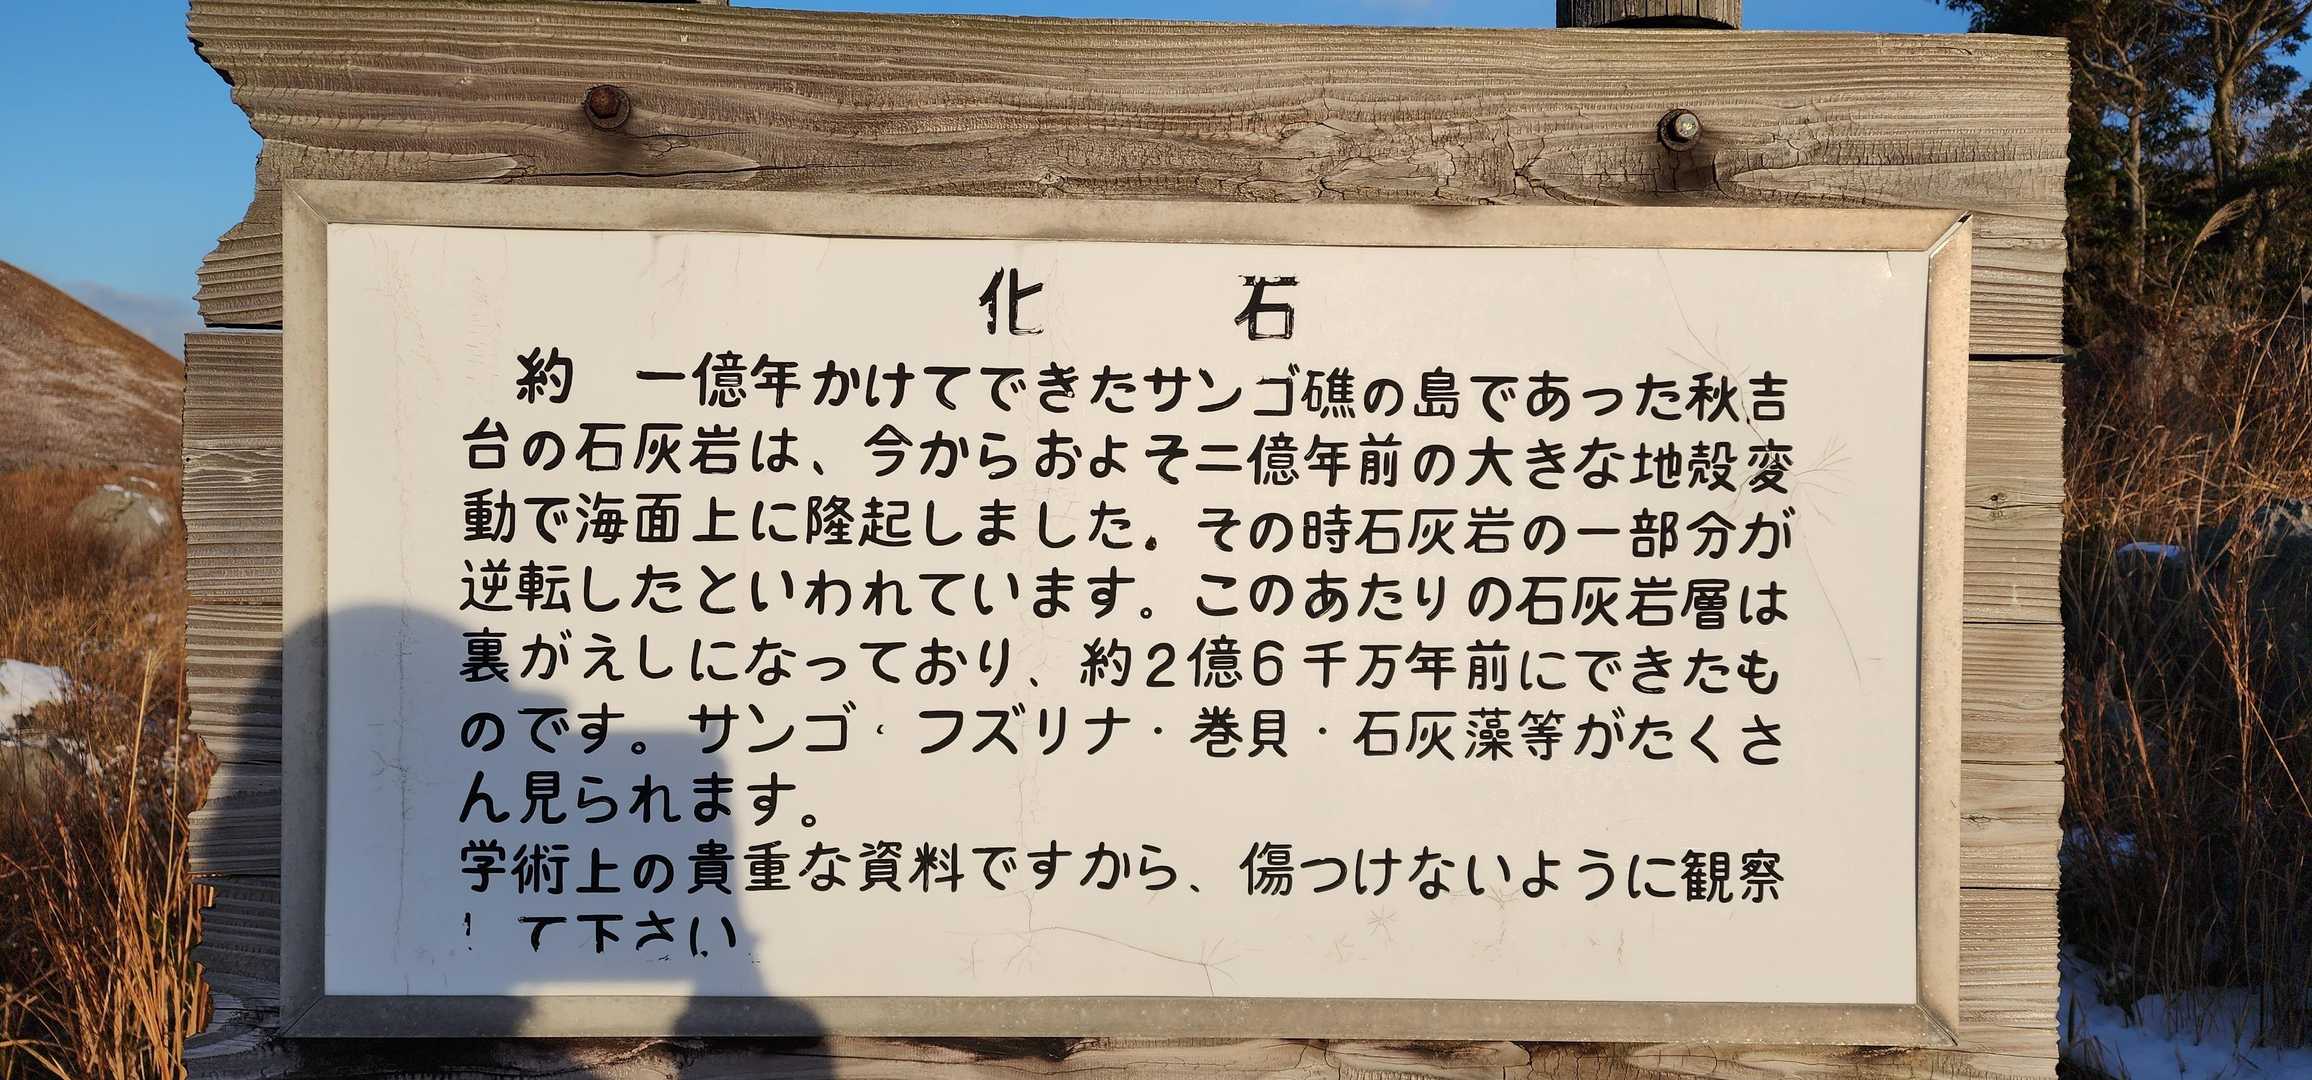 化石
約 一億年かけてできたサンゴ礁の島であった秋吉
台の石灰岩は、今からおよそ二億年前の大きな地殻変
動で海面上に隆起しました。その時石灰岩の一部分が
逆転したといわれています。このあたりの石灰岩層は
裏がえしになっており、約2億6千万年前にできたも
のです。サンゴ・フズリナ・巻貝・石灰藻等がたくさ
ん見られます。
学術上の貴重な資料ですから、傷つけないように観察
して下さい